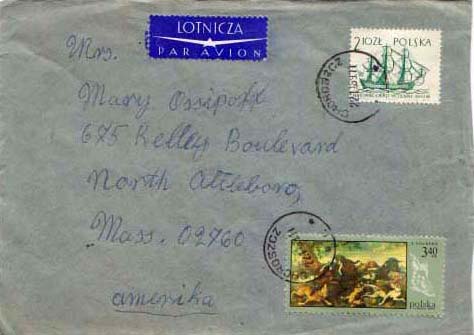 LOTNICZA
PAR AVION
2,10 ZŁ POLSKA
Mrs.
Mary Ossipoff
675 Kelley Boulevard
North Attleboro,
Mass. 02760
amerika
3,40
polska